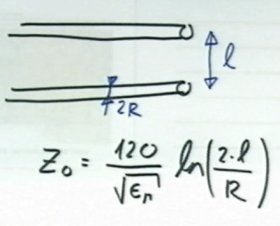 l
2R
Z₀ = 120/√εr ln(2·l/R)